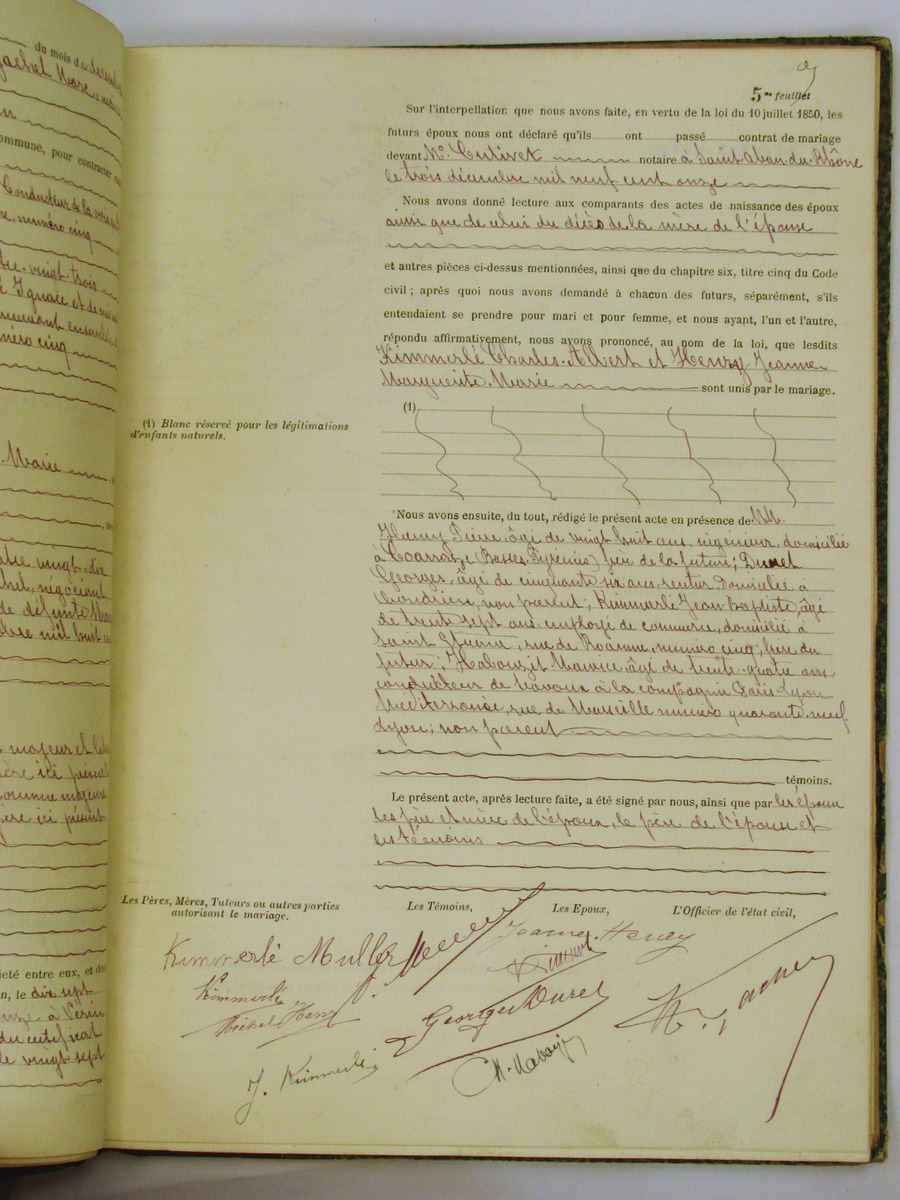 du mois de décembre
Commune, pour contracter
Conducteur de la
numéro cinq
vingt-trois
Ignace et de
numéro cinq
Marie
vingt-dix
négociant
de défunte
mil huit
majeur et
ici présent
majeure
ici présent
jeté entre eux, et
n, le dix sept
onze à
du certificat
de vingt sept
5me feuillet
Sur l'interpellation que nous avons faite, en vertu de la loi du 10 juillet 1850, les
futurs époux nous ont déclaré qu'ils ont passé contrat de mariage
devant Me Cutivet notaire à Saint-Alban-du-Rhône
le trois décembre mil neuf cent onze
Nous avons donné lecture aux comparants des actes de naissance des époux
ainsi que de celui du décès de la mère de l'épouse
et autres pièces ci-dessus mentionnées, ainsi que du chapitre six, titre cinq du Code
civil ; après quoi nous avons demandé à chacun des futurs, séparément, s'ils
entendaient se prendre pour mari et pour femme, et nous ayant, l'un et l'autre,
répondu affirmativement, nous avons prononcé, au nom de la loi, que lesdits
Kimmerlé Charles-Albert et Henry Jeanne-
Marguerite-Marie sont unis par le mariage.
(1)
(1) Blanc réservé pour les légitimations
d'enfants naturels.
Nous avons ensuite, du tout, rédigé le présent acte en présence de MM.
Henry Pierre, âgé de vingt huit ans, ingénieur, domicilié
à Coarraze (Basses-Pyrénées) frère de la future ; Duret
Georges, âgé de cinquante six ans, rentier Domicilié à
Condrieu, non parent ; Kimmerlé Jean-Baptiste, âgé
de trente sept ans employé de commerce, domicilié à
Saint Etienne, rue de Roanne, numéro cinq, frère du
futur ; Habouzit Maurice âgé de trente-quatre ans,
conducteur de travaux à la compagnie Paris-Lyon
Méditerranée, rue de Marseille numéro quarante-neuf
Lyon ; non parent
témoins.
Le présent acte, après lecture faite, a été signé par nous, ainsi que par les époux
les père et mère de l'époux, le père de l'épouse et
les témoins
Les Pères, Mères, Tuteurs ou autres parties
autorisant le mariage.
Les Témoins,
Les Epoux,
L'Officier de l'état civil,
Kimmerlé Muller
Jeanne Henry
Kimmerlé
Michel Henry
Georges Duret
J. Kimmerlé